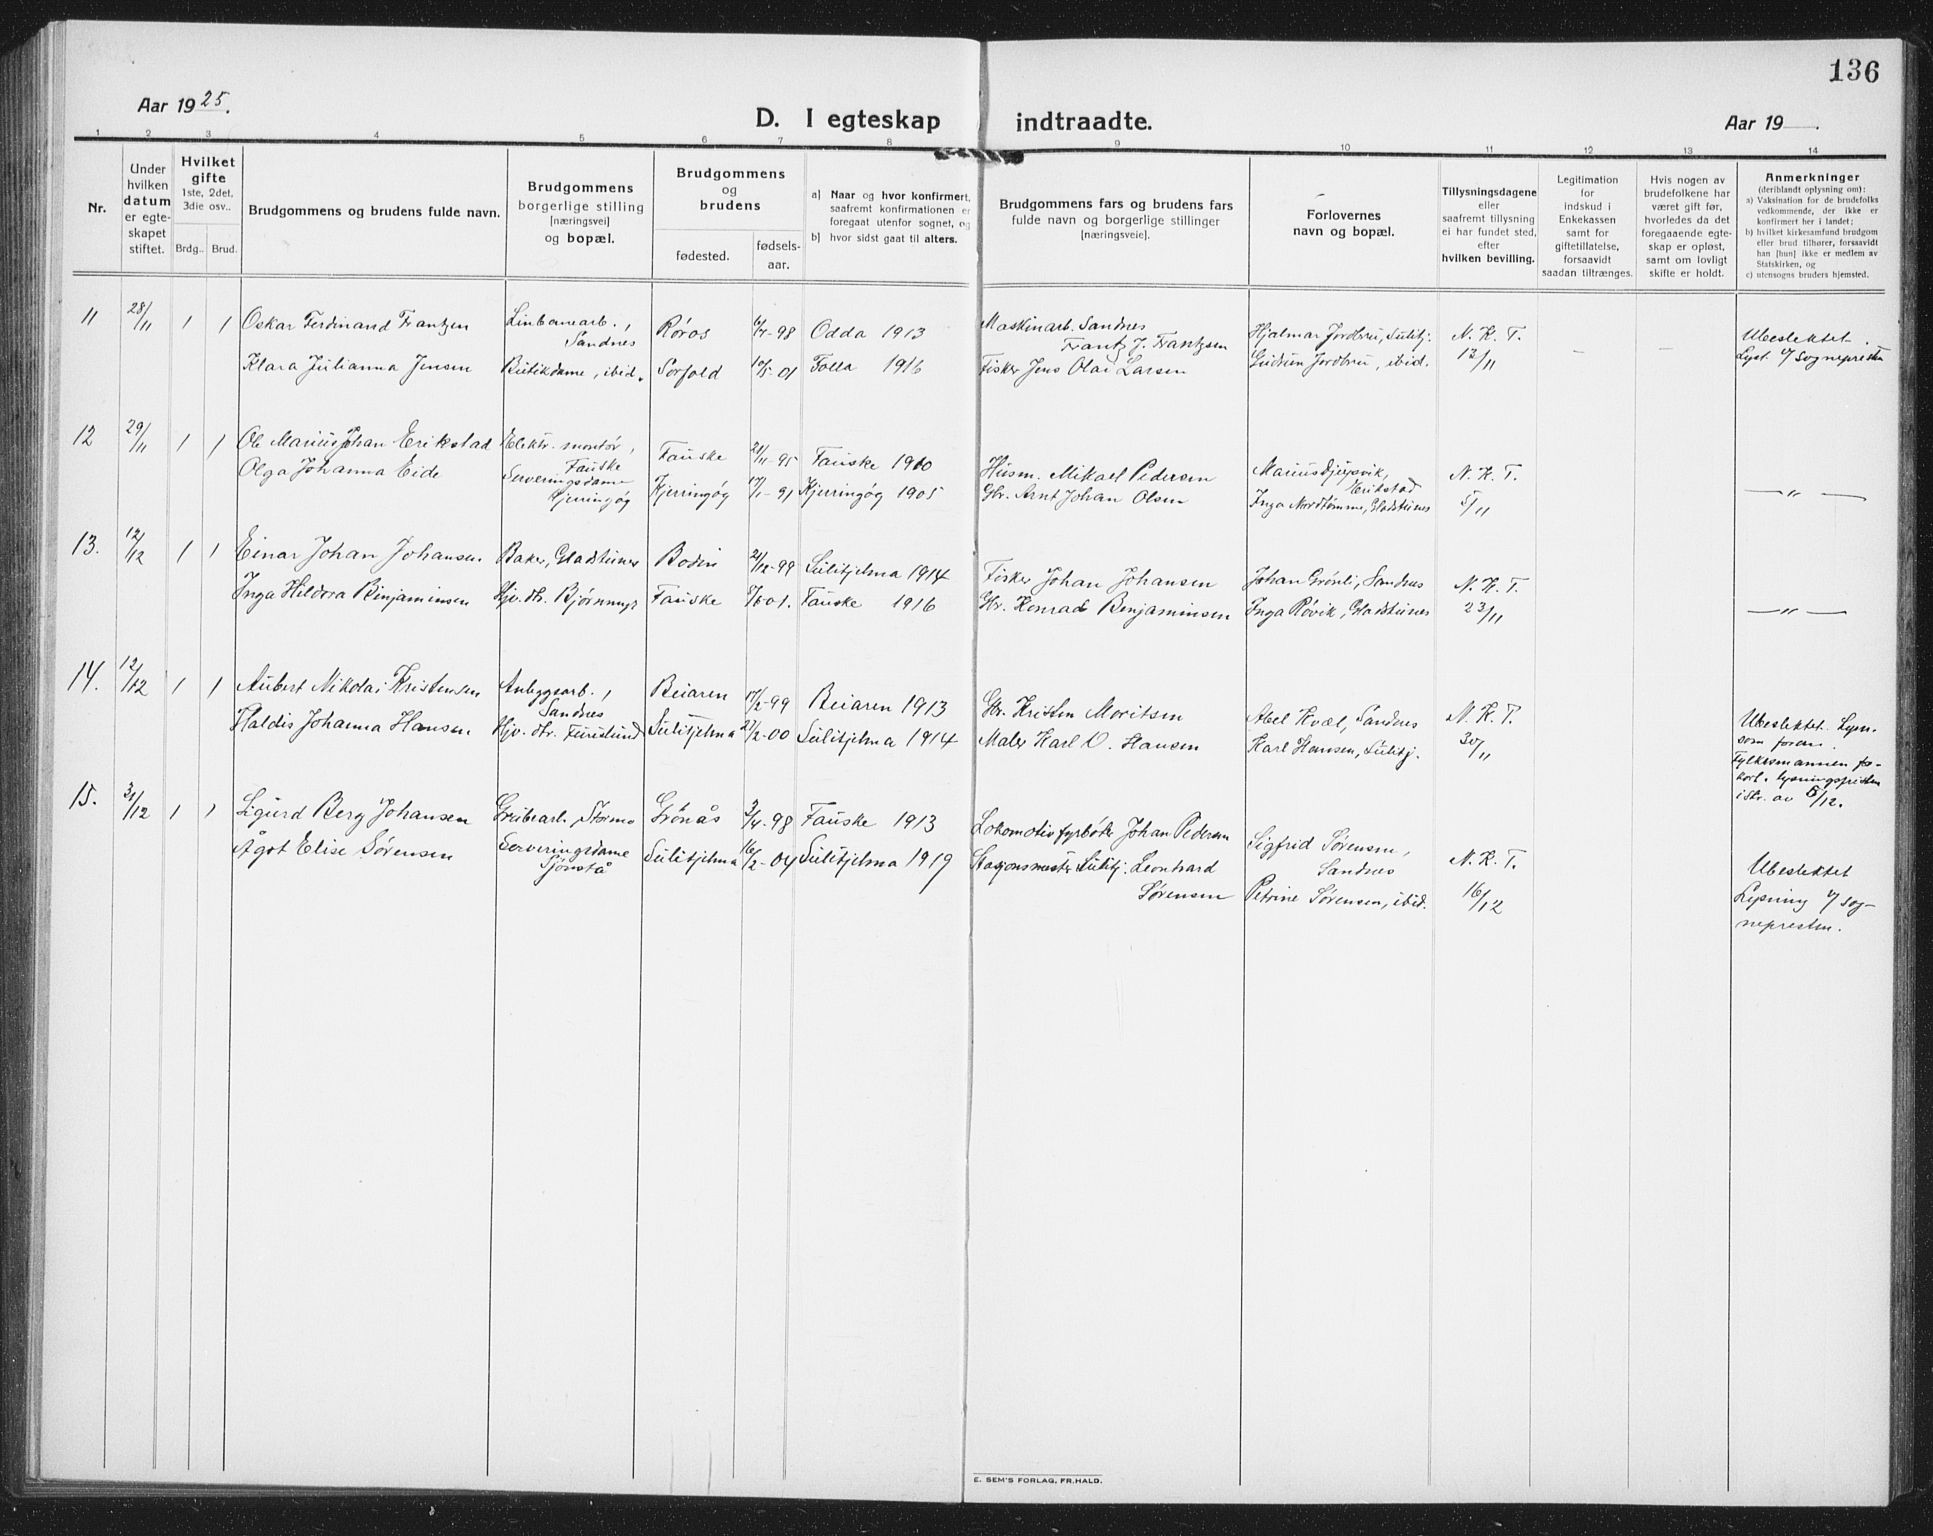 136
Aar 1925.
D. I egteskap indtraadte.
Aar 19 .
1 2 3 4 5 6 7 8 9 10 11 12 13 14
Nr.
Under hvilken datum er egte-skapet stiftet.
Hvilket gifte
1ste, 2det, 3die osv..
Brdg.. Brud.
Brudgommens og brudens fulde navn.
Brudgommens borgerlige stilling [næringsvei] og bopæl.
Brudgommens og brudens
fødested.
fødsels-aar.
a) Naar og hvor konfirmert, saafremt konfirmationen er foregaat utenfor sognet, og
b) hvor sidst gaat til alters.
Brudgommens fars og brudens fars fulde navn og borgerlige stillinger [næringsveie].
Forlovernes navn og bopæl.
Tillysningsdagene eller saafremt tillysning ei har fundet sted, efter hvilken bevilling.
Legitimation for indskud i Enkekassen samt for giftetillatelse, forsaavidt saadan tiltrænges.
Hvis nogen av brudefolkene har været gift før, hvorledes da det foregaaende egte-skap er opløst, samt om lovligt skifte er holdt.
Anmerkninger
(deriblandt oplysning om):
a) Vaksination for de brudefolks vedkommende, der ikke er konfirmert her i landet;
b) hvilket kirkesamfund brudgom eller brud tilhører, forsaavidt han [hun] ikke er medlem av Statskirken, og
c) utensogns bruders hjemsted.
11 28/11 1 1 Oskar Ferdinand Frantzen Linbanearb., Sandnes Røros 98 Odda 1913 Maskinarb. Sandnes Frantz J. Frantzen Hjalmar Jordbru, Sulitj. N. K. T. Ubeslektet.
Klara Julianna Jensen Butikdame, ibid. Sørfold 10/5-01 Folla 1916 Fisker Jens Olai Larsen Gudrun Jordbru, ibid. 13/11 - - Lyst v/ Sognepresten
12 29/11 1 1 Ole Marius Johan Erikstad Elektr. montør, Fauske Fauske 21/11-95 Fauske 1910 Husm. Mikael Pedersen Marius Djupvik, Erikstad N. K. T.
Olga Johanna Eide Serveringsdame Kjerringøy Kjerringøy 17/1-91 Kjerringøy 1905 Gbr. Arnt Johan Olsen Inga Nordtømme, Gladsteines 5/11 — " —
13. 12/12 1 1 Einar Johan Johansen Baker, Gladsteines Bodin 21/12-99 Sulitjelma 1914 Fisker Johan Johansen Johan Grønli, Sandnes N. K. T.
Inga Hildora Benjaminsen Hjv. dtr. Bjørnmyr Fauske 01. Fauske 1916 Gbr. Konrad Benjaminsen Inga Røvik, Gladsteines 23/11 — " —
14. 12/12 1 1 Aubert Nikolai Kristensen Anleggsarb., Sandnes Beiaren 17/2-99 Beiaren 1913 Gbr. Kristen Moritsen Abel Kvæl, Sandnes N. K. T. Ubeslektet. Lysn. som foran.
Haldis Johanna Hansen Hjv. dtr. Furulund Sulitjelma 27/2-00 Sulitjelma 1914 Maler Karl O. Hansen Karl Hansen, Sulitj. 30/11 Fylkesmannen for-kort. lysningsfristen i skr. av 5/12.
15. 31/12 1 1 Sigurd Berg Johansen Grubearb., Stormo Grønås 3/4-98 Fauske 1913 Lokomotivfyrbøter Johan Pedersen Sigfrid Sørensen, Sandnes N. K. T. Ubeslektet
Ågot Elise Sørensen Serveringsdame Sjønstå Sulitjelma 16/2-04 Sulitjelma 1919 Stasjonsmester Sulitj. Leonhard Sørensen Petrine Sørensen, ibid. 16/12 Lysning v/ sog-nepresten.
E. SEM'S FORLAG, FR.HALD.